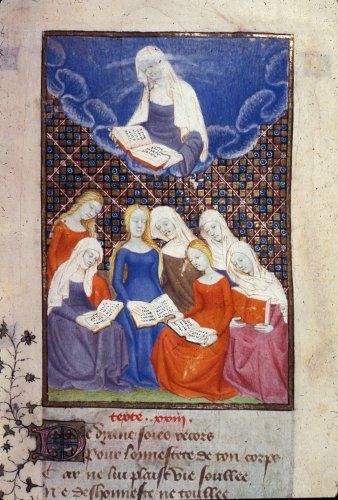 texte .xxiii.
De dyane soies recors
Pour lonnestete de ton corps
Car ne lui plaist vie soullee
Ne deshonneste ne toullee